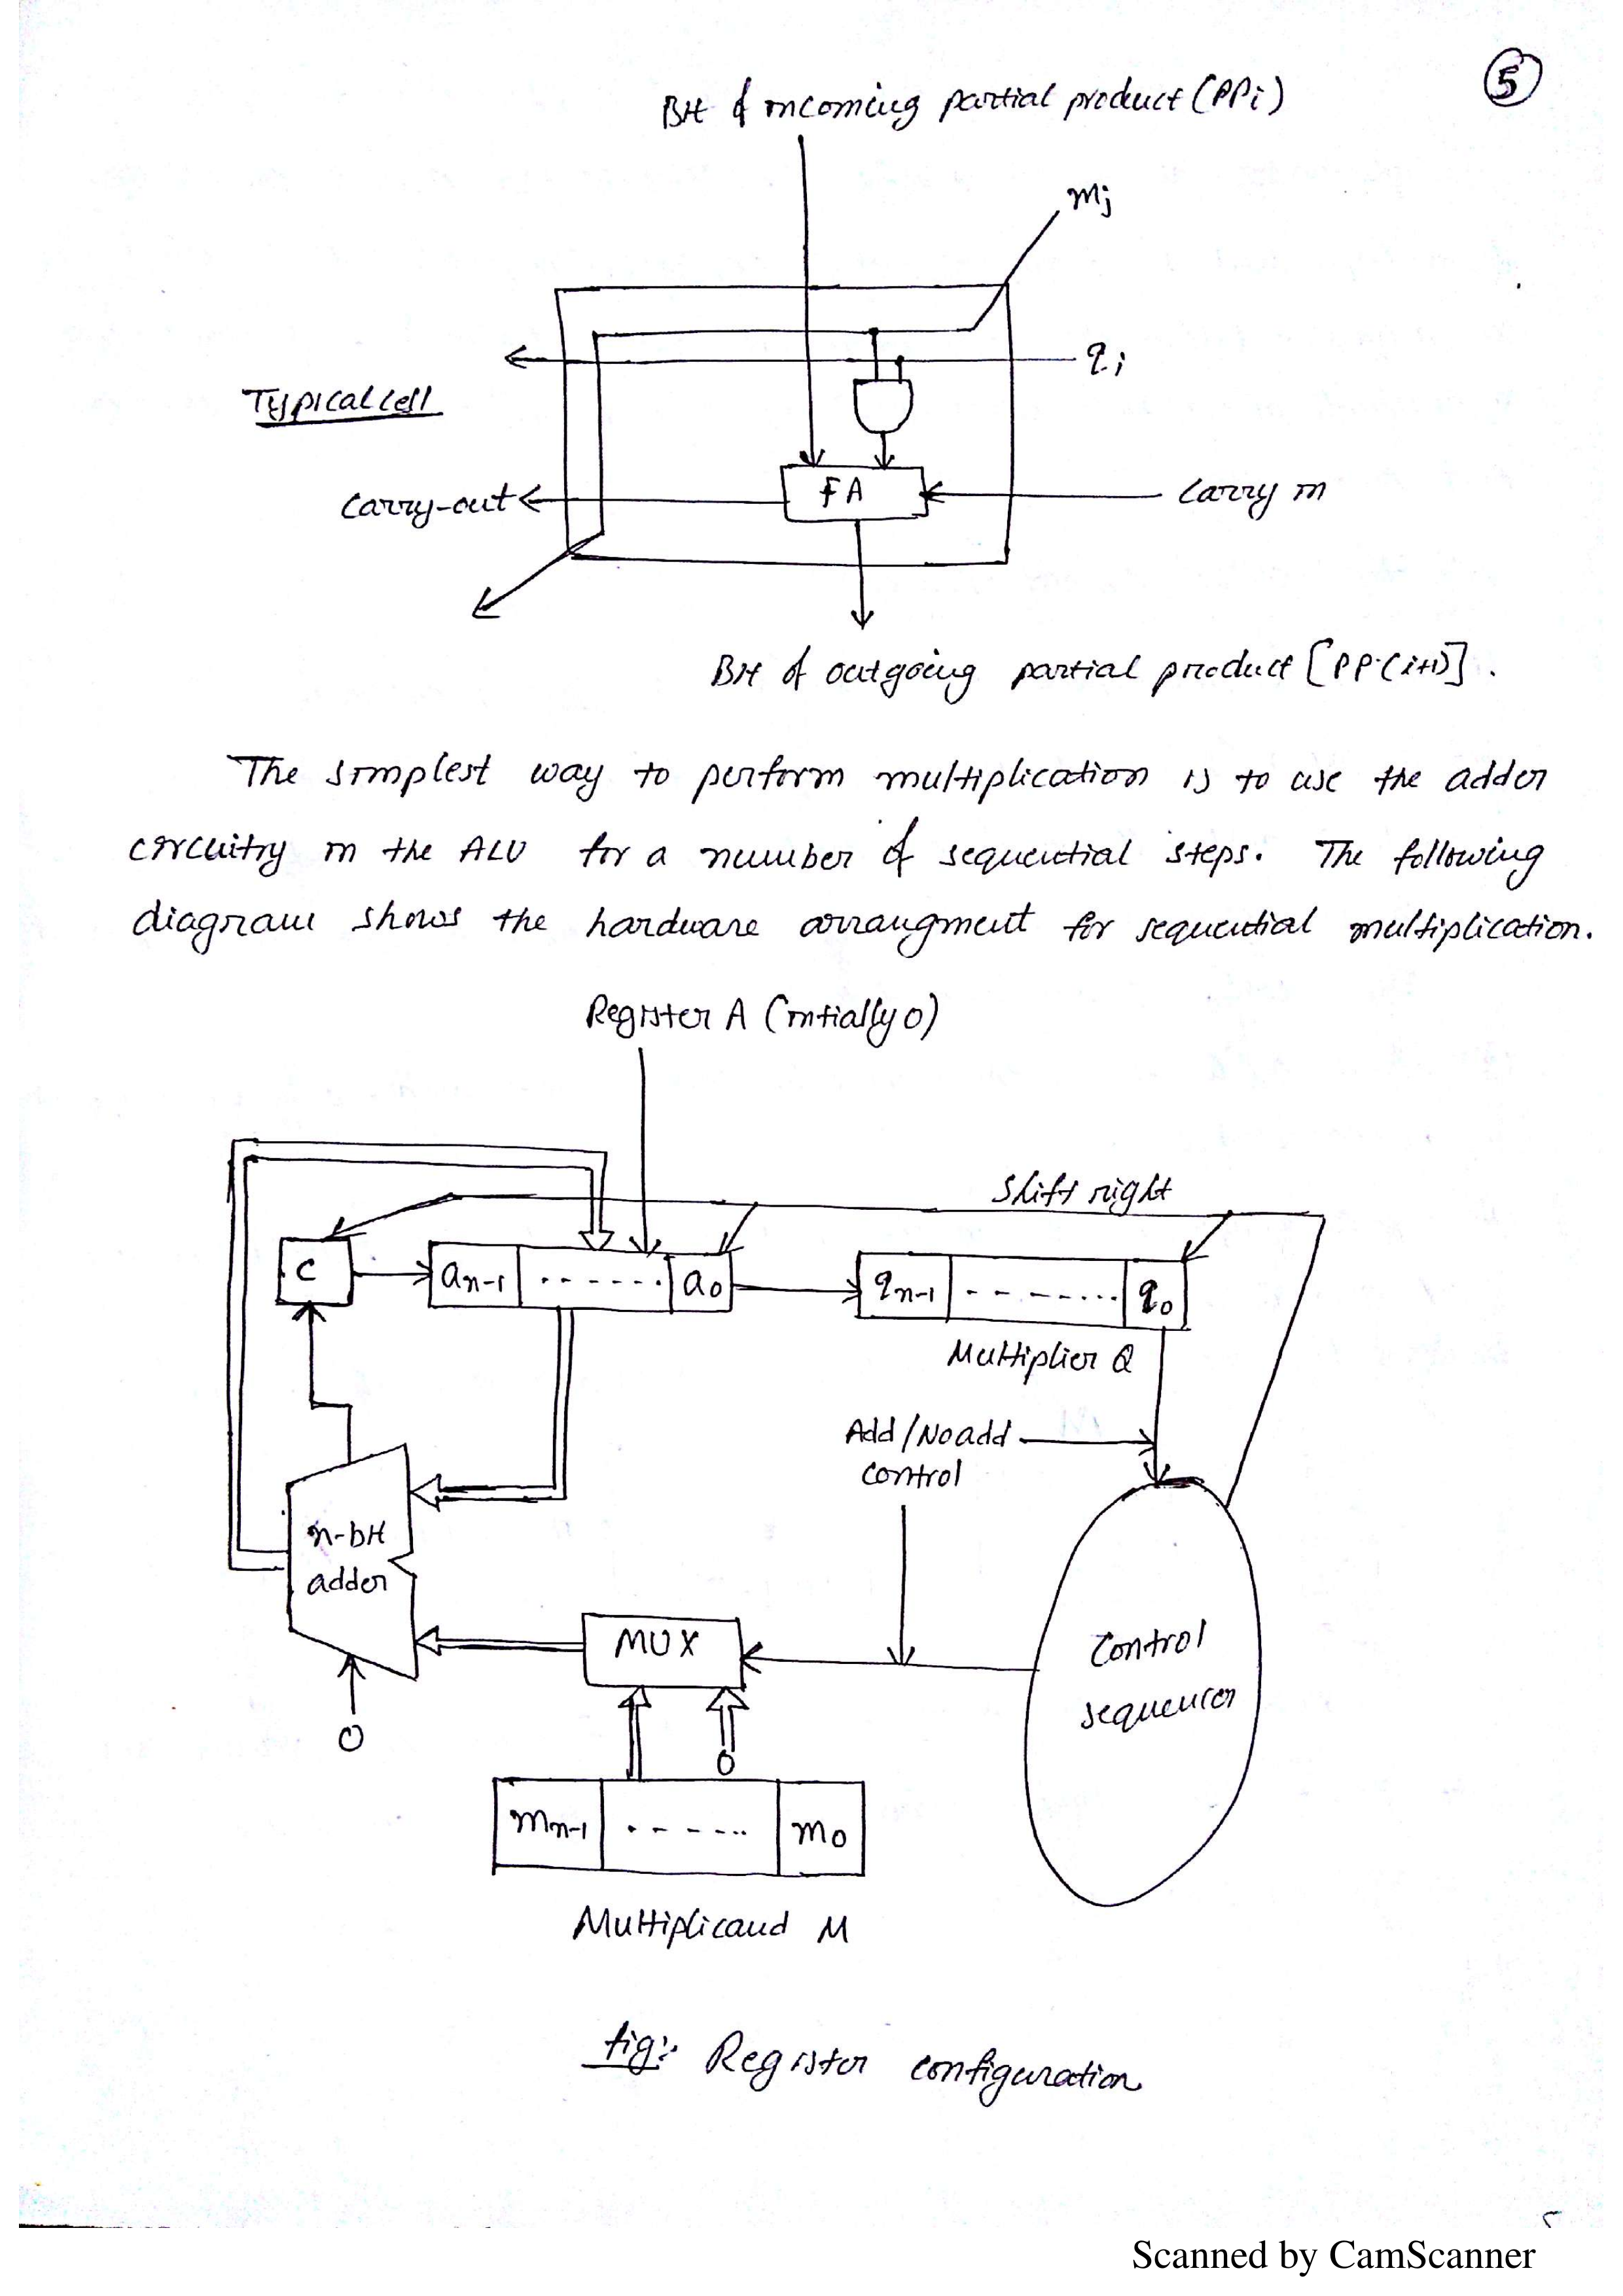 5
Bit of incoming partial product (PPi)
mj
qi
Typical cell
FA
Carry-out
Carry in
Bit of outgoing partial product [PP(i+1)].
The simplest way to perform multiplication is to use the adder
circuitry in the ALU for a number of sequential steps. The following
diagram shows the hardware arrangment for sequential multiplication.
Register A (intially 0)
Shift right
C
an-1 ...... a0
qn-1 ........ q0
Multiplier Q
Add/Noadd
control
n-bit
adder
MUX
Control
sequencer
0
0
mn-1 ...... m0
Multiplicand M
fig:- Register configuration
Scanned by CamScanner